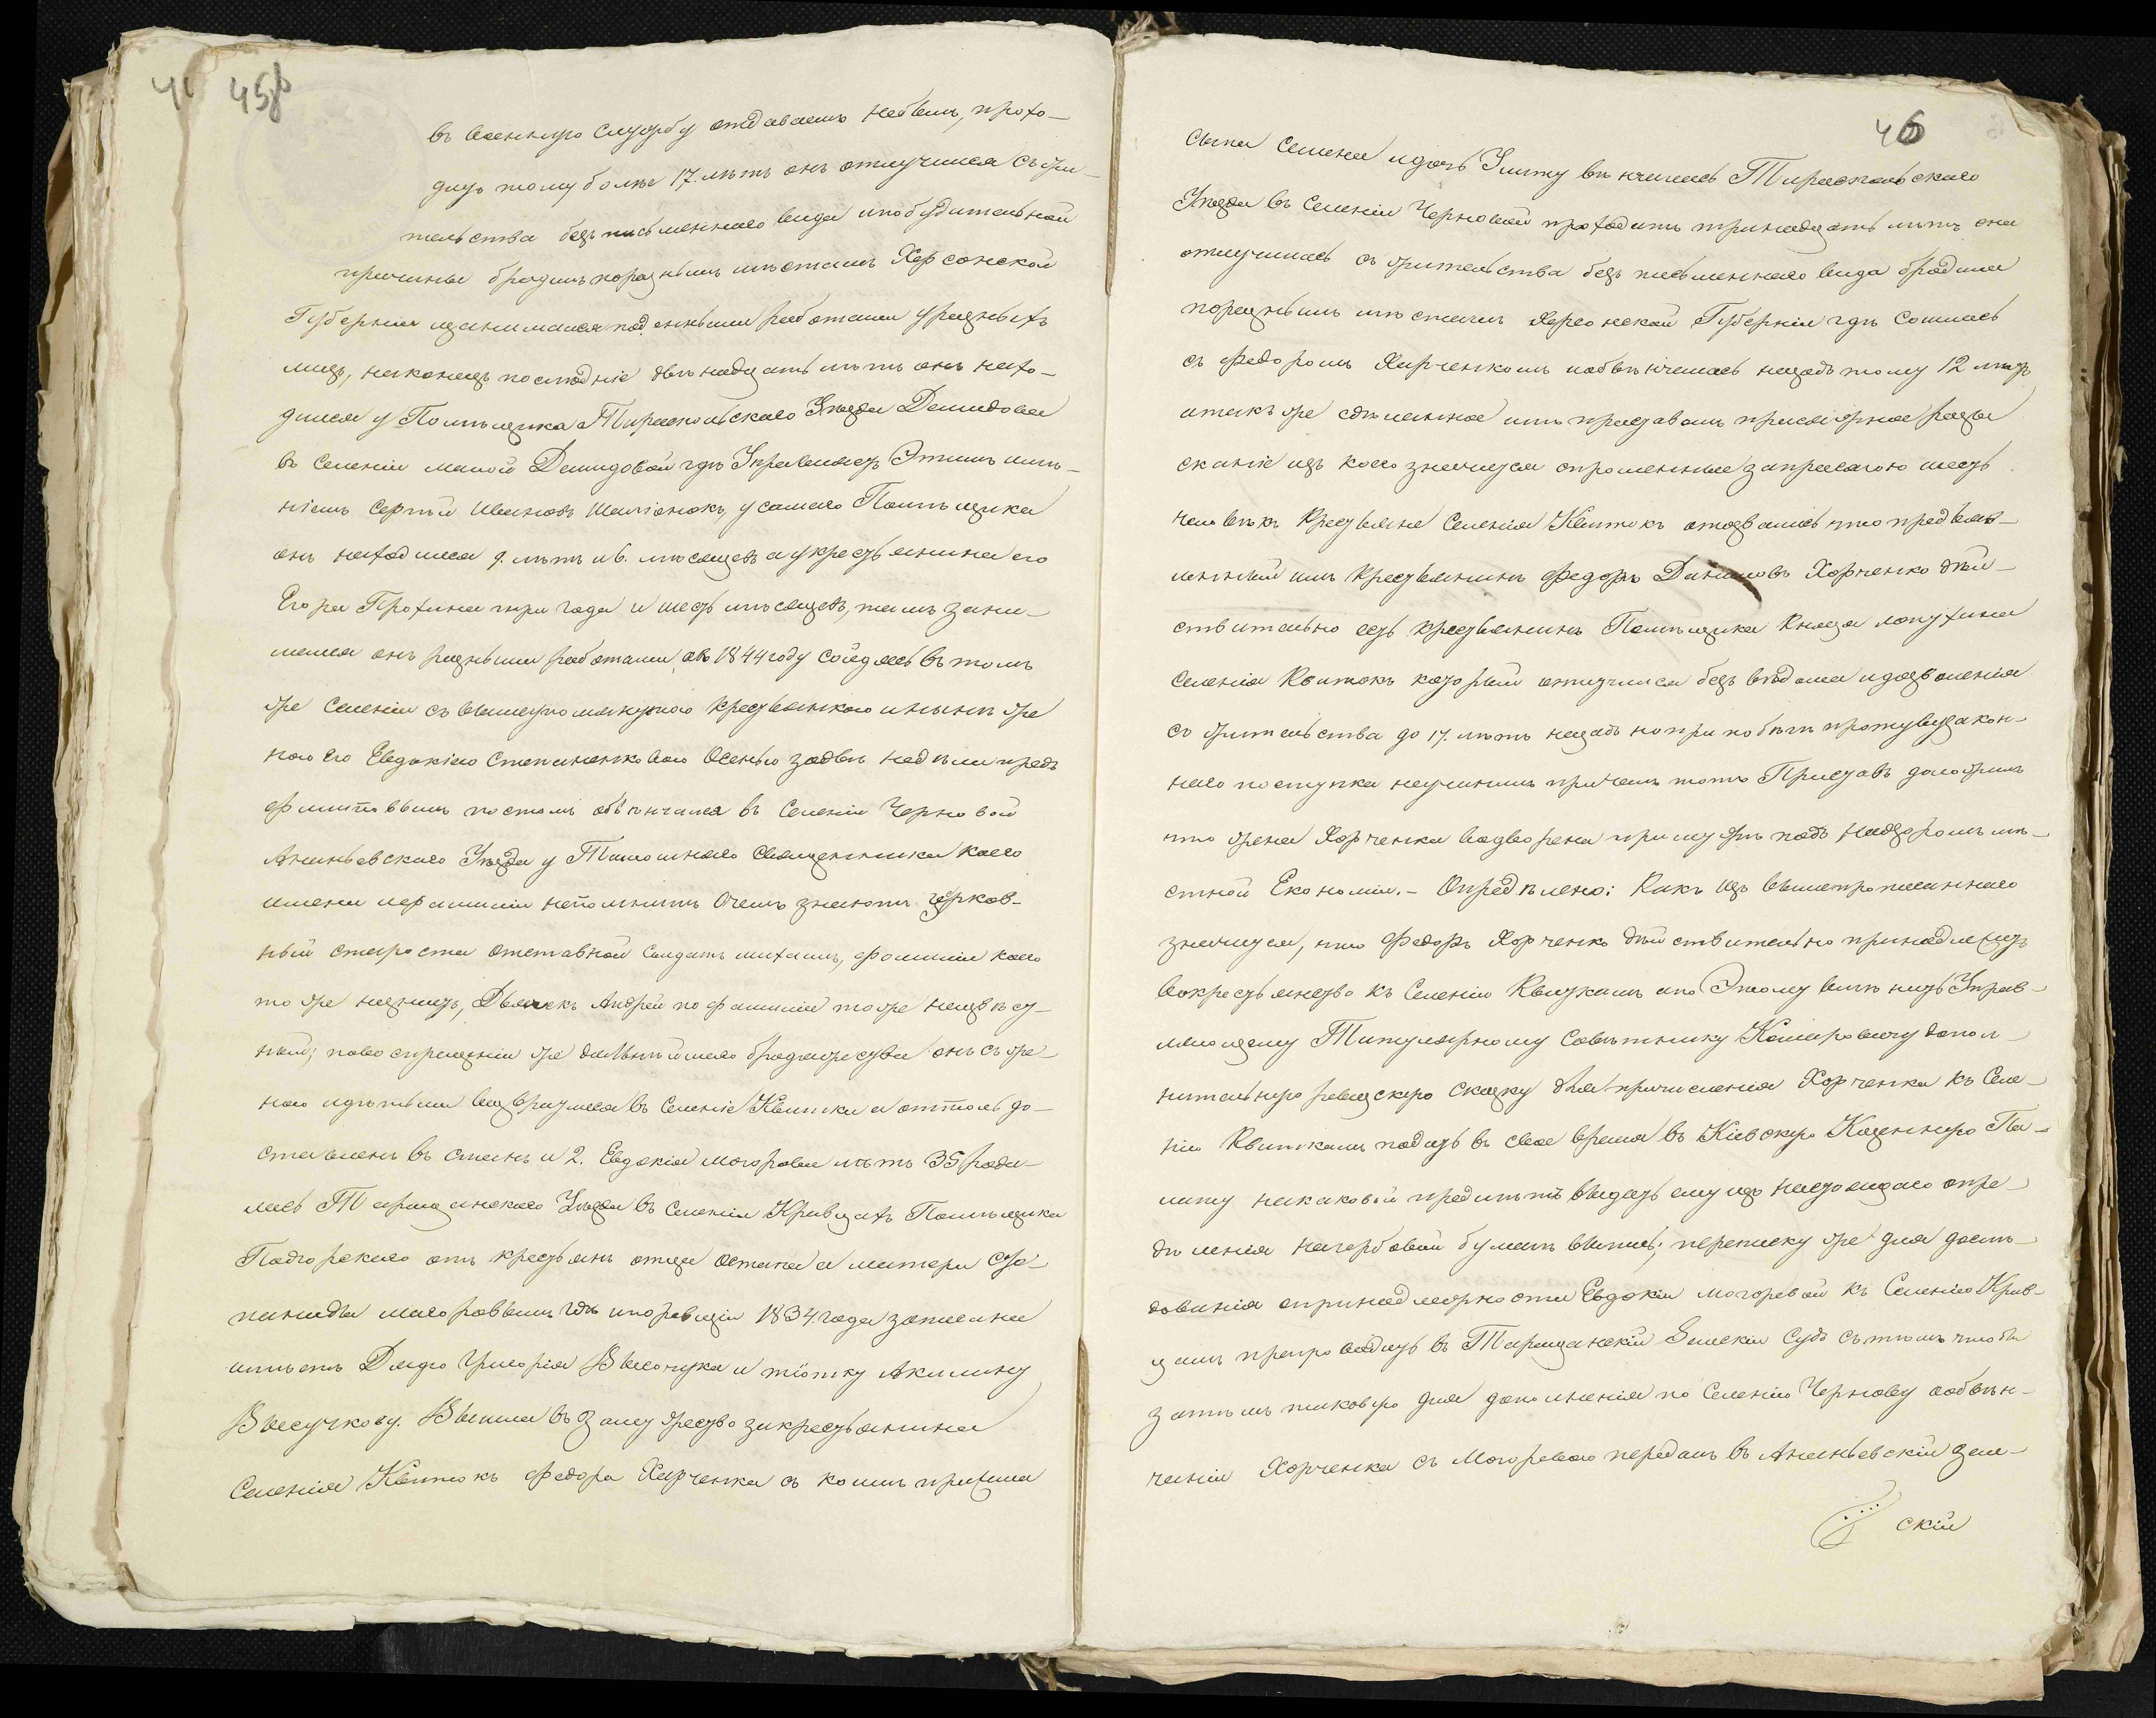 45б
въ военную службу отдаваемъ небылъ, прохо-
дитъ тому болѣе 17. лѣтъ онъ отлучился съ жи-
тельства безъ письменнаго вида и по будительной
причины бродилъ по разнымъ мѣстамъ Херсонской
Губерніи и занимался под.енными работами у разныхъ
лицъ, наконецъ послѣдніе двѣнадцать лѣтъ онъ нахо-
дился у Помѣщика Тираспольскаго Уѣзда Демидова
въ селеніи малой Демидовой гдѣ Управляетъ Этимъ имѣ-
ніемъ Сергѣй Ивановъ у самаго Помѣщика
онъ находился 9. лѣтъ и 6. мѣсяцевъ а у крестьянина его
Егора Трохина три года и шесть мѣсяцевъ, тамъ зани-
мался онъ разными работами, а въ 1844 году сойдясь въ томъ
же селеніи съ вышеупомянутою крестьянкою и нынѣ же
ною его Евдокіею Степаненковою Осенью за двѣ недѣли предъ
Филиповымъ постомъ обвѣнчался въ селеніи Черновой
Ананьевскаго Уѣзда у Тамошняго Священника коего
имени и фамиліи непомнитъ О чемъ знаютъ Церков-
ный староста Отставной Солдатъ михаилъ, фамиліи коего
то же незнаетъ, Дьячекъ Андрей по фамиліи тоже неизвѣст-
ный; по воспрещеніи же дальнѣйшаго бродяжества онъ съ же-
ною и дѣтьми возвратился въ селеніе Квитки и оттоль до-
ставленъ въ станъ и 2. Евдокія Магорова лѣтъ 35 роди-
лась Таращанскаго Уѣзда въ селеніи Кривцахъ Помѣщика
Подгорскаго отъ крестьянъ отца Остапа и матери Сте-
паниды магоровыхъ гдѣ и по ревизіи 1834. года записана
имѣетъ Дядю Григорія Высочука и тіотку Акилину
Высучкову. Вышла въ Замужество за крестьянина
Селенія Квитокъ Федора Харченка съ коимъ прижила
46
сына Семена и дочь Улиту вѣнчалась Тираспольскаго
Уѣзда въ селеніи Черновой проходитъ тринадцать лѣтъ она
отлучилась съ жительства безъ письменнаго вида бродила
по разнымъ мѣстамъ Херсонской Губерніи гдѣ сошлась
съ Федоромъ Харченкомъ и обвѣнчалась назадъ тому 12 лѣтъ
и такъ же сдѣланное имъ приставомъ присяжное разы
сканіе изъ коего значится спрошенные за присягою шесть
человѣкъ крестьяне Селенія Квитокъ отозвались что предъяв-
ленный имъ крестьянинъ Федоръ Даниловъ Хорченко дѣй-
ствительно есть крестьянинъ Помѣщика Князя Лопухина
Селенія Квитокъ который отлучился безъ вѣдома и дозволенія
съ жительства до 17. лѣтъ назадъ но при побѣгѣ противузакон-
наго поступка неучинилъ причемъ тотъ Приставъ доложилъ
что жена Хорченка водворена при мужѣ подъ надзоромъ мѣ-
стной Економіи. – Опредѣлено: Какъ изъ вышепрописаннаго
значится, что Федоръ Хорченко дѣйствительно принадлежитъ
вокрестьянство къ Селенію Квиткамъ а по Этому вмѣнить Управ-
ляющему Титулярному Совѣтнику допол-
нительную ревизскую сказку для причисленія Хорченка къ Селе-
нію Квиткамъ подать въ свое время въ Кіевскую Казенную Па-
лату на каковой предмѣтъ выдать ему изъ настоящаго опре-
дѣленія нагербовой бумагѣ выпись; переписку же для
дованія о принадлежности Евдокіи могоревой къ Селенію Крив-
цамъ препроводить въ Таращанскій Земскій Судъ съ тѣмъ чтобы
затѣмъ таковую для дополненія по Селенію Чернову о обвѣн-
чаніи Хорченка съ Могоревою передалъ въ Ананьевскій Зем-
скій